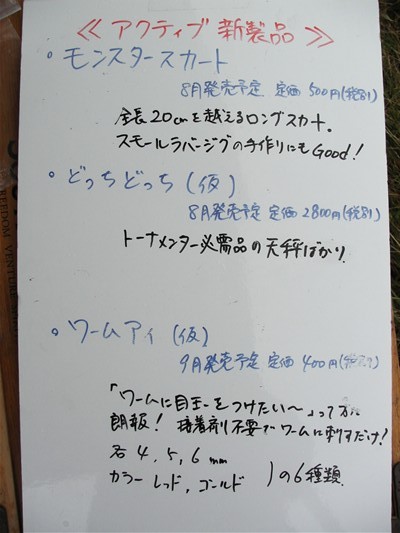 ≪ アクティブ 新製品 ≫
・モンスタースカート
8月発売予定 定価 500円(税別)
全長20cmを越えるロングスカート。
スモールラバージグの手作りにもGood!
・どっちどっち(仮)
8月発売予定 定価 2800円(税別)
トーナメンター必需品の天秤ばかり
・ワームアイ(仮)
9月発売予定 定価 400円(税別)
「ワームに目玉をつけたい〜」って方に
朗報! 接着剤不要でワームに刺すだけ!
各 4, 5, 6 mm
カラー レッド, ゴールド )の6種類
FREEDOM VENTURE